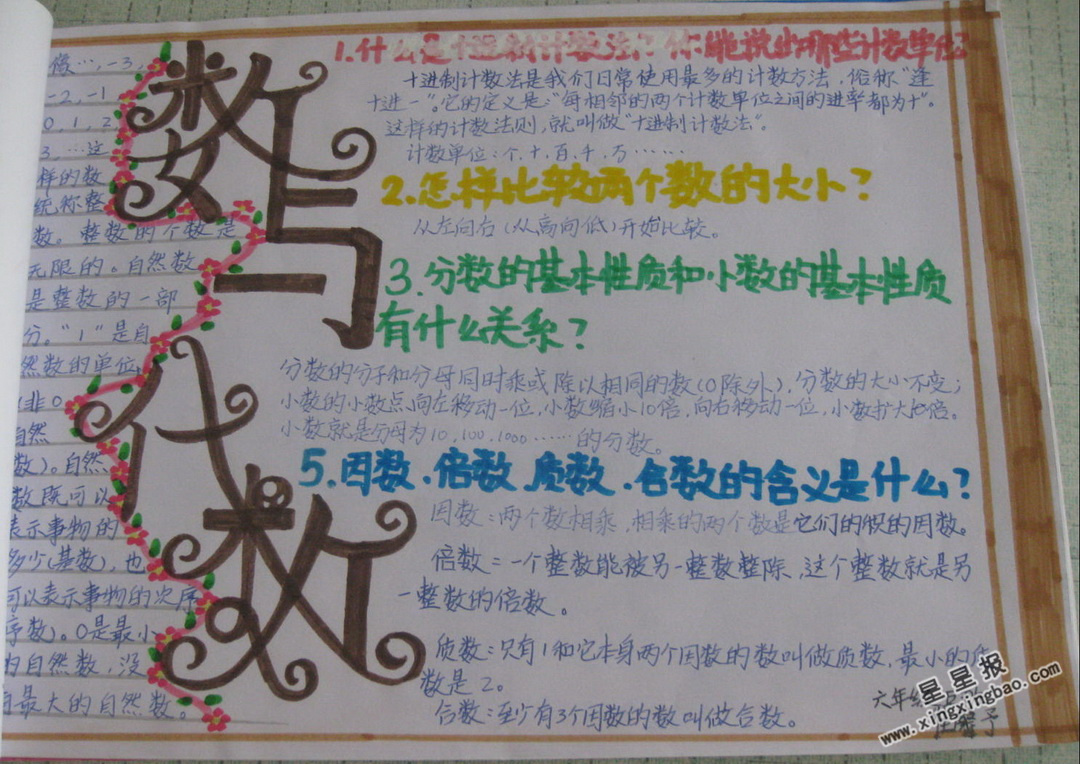 像…,-3,
-2,-1
0,1,2
3,…这
样的数
统称整
数。整数的个数是
无限的。自然数
是整数的一部
分。“1”是自
然数的单位,
(非0
自然
数)。自然
数既可以
表示事物的
多少(基数),也
可以表示事物的次序
序数)。0是最小
的自然数,没
有最大的自然数。
数与代数
1.什么是十进制计数法?你能说出哪些计数单位?
十进制计数法是我们日常使用最多的计数方法,俗称“逢
十进一”。它的定义是:“每相邻的两个计数单位之间的进率都为十”。
这样的计数法则,就叫做“十进制计数法”。
计数单位:个、十、百、千、万……
2.怎样比较两个数的大小?
从左向右(从高向低)开始比较。
3.分数的基本性质和小数的基本性质
有什么关系?
分数的分子和分母同时乘或除以相同的数(0除外),分数的大小不变;
小数的小数点向左移动一位,小数缩小10倍,向右移动一位,小数扩大10倍。
小数就是分母为10、100、1000……的分数。
5.因数、倍数、质数、合数的含义是什么?
因数:两个数相乘,相乘的两个数是它们的积的因数。
倍数:一个整数能被另一整数整除,这个整数就是另
一整数的倍数。
质数:只有1和它本身两个因数的数叫做质数,最小的质
数是2。
合数:至少有3个因数的数叫做合数。
六年级
星星报
www.xingxingbao.com